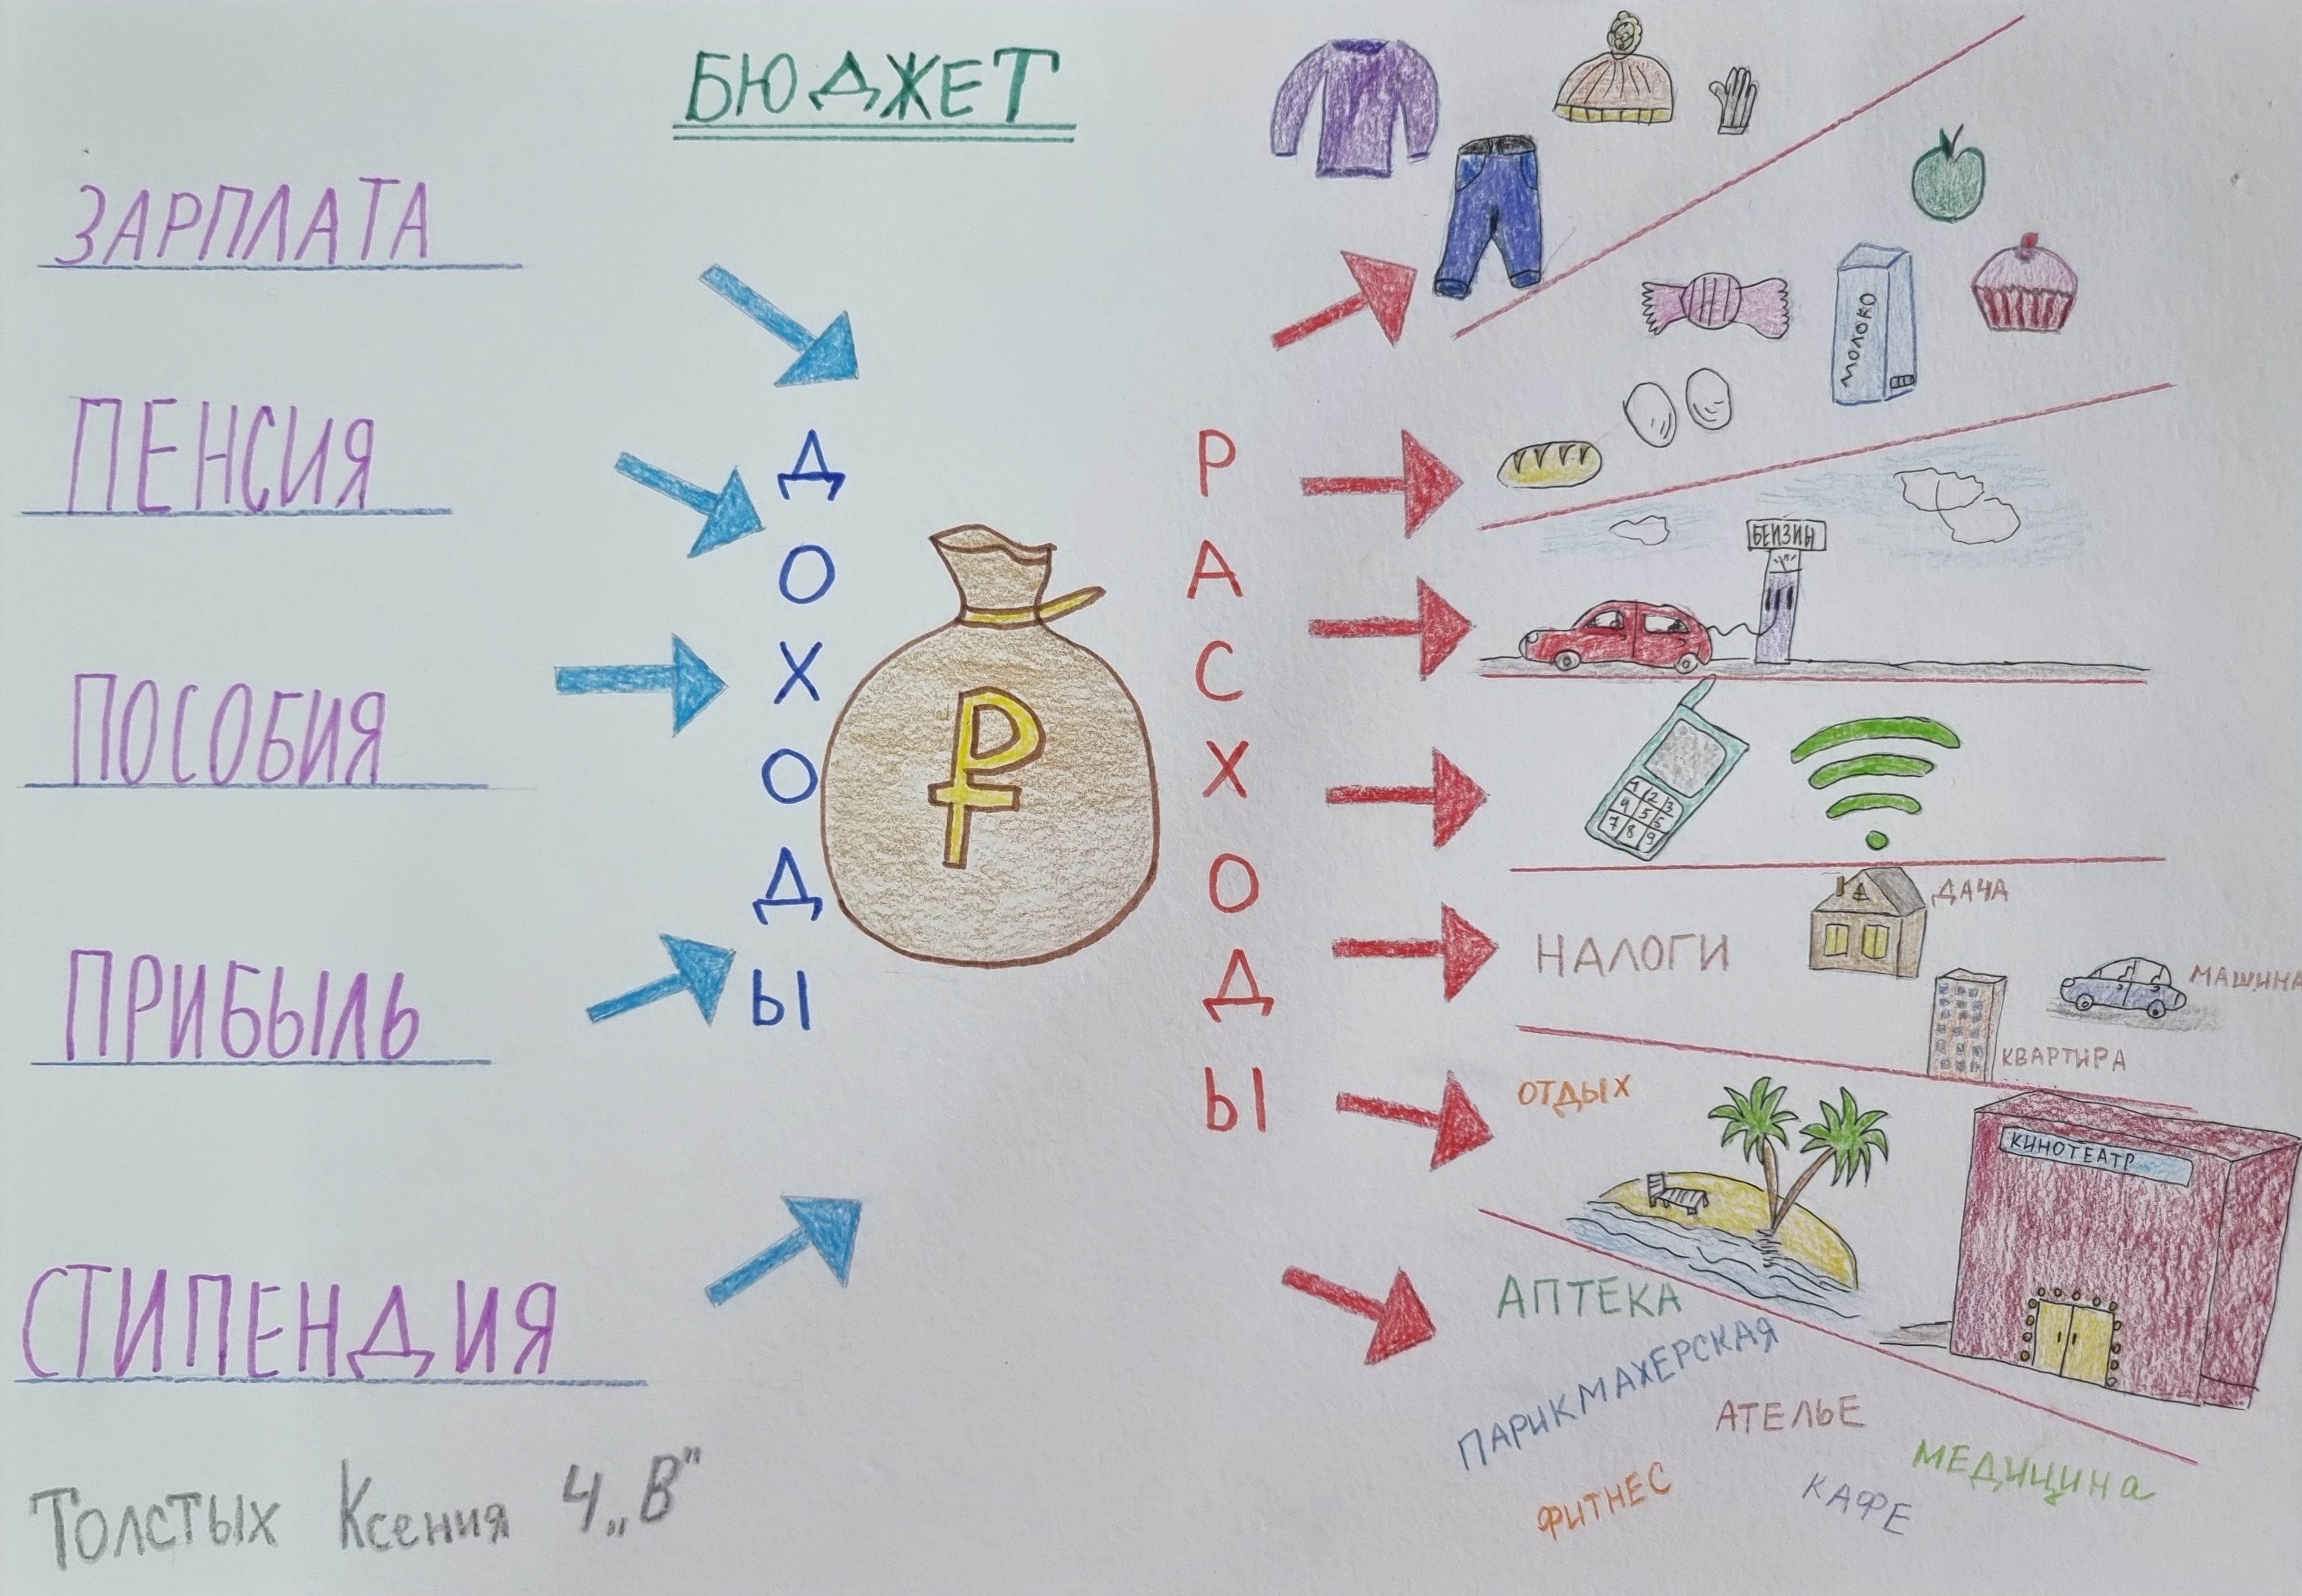 БЮДЖЕТ
ЗАРПЛАТА
ПЕНСИЯ
ПОСОБИЯ
ПРИБЫЛЬ
СТИПЕНДИЯ
ДОХОДЫ
₽
РАСХОДЫ
МОЛОКО
БЕНЗИН
1 2 3
4 5 5
7 8 9
НАЛОГИ
ДАЧА
МАШИНА
КВАРТИРА
ОТДЫХ
КИНОТЕАТР
АПТЕКА
ПАРИКМАХЕРСКАЯ
АТЕЛЬЕ
МЕДИЦИНА
ФИТНЕС
КАФЕ
Толстых Ксения 4 „В"